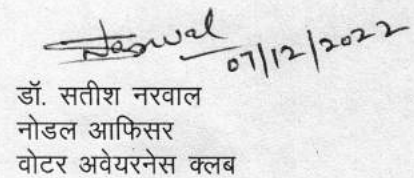 Narwal
07/12/2022
डॉ. सतीश नरवाल
नोडल आफिसर
वोटर अवेयरनेस क्लब